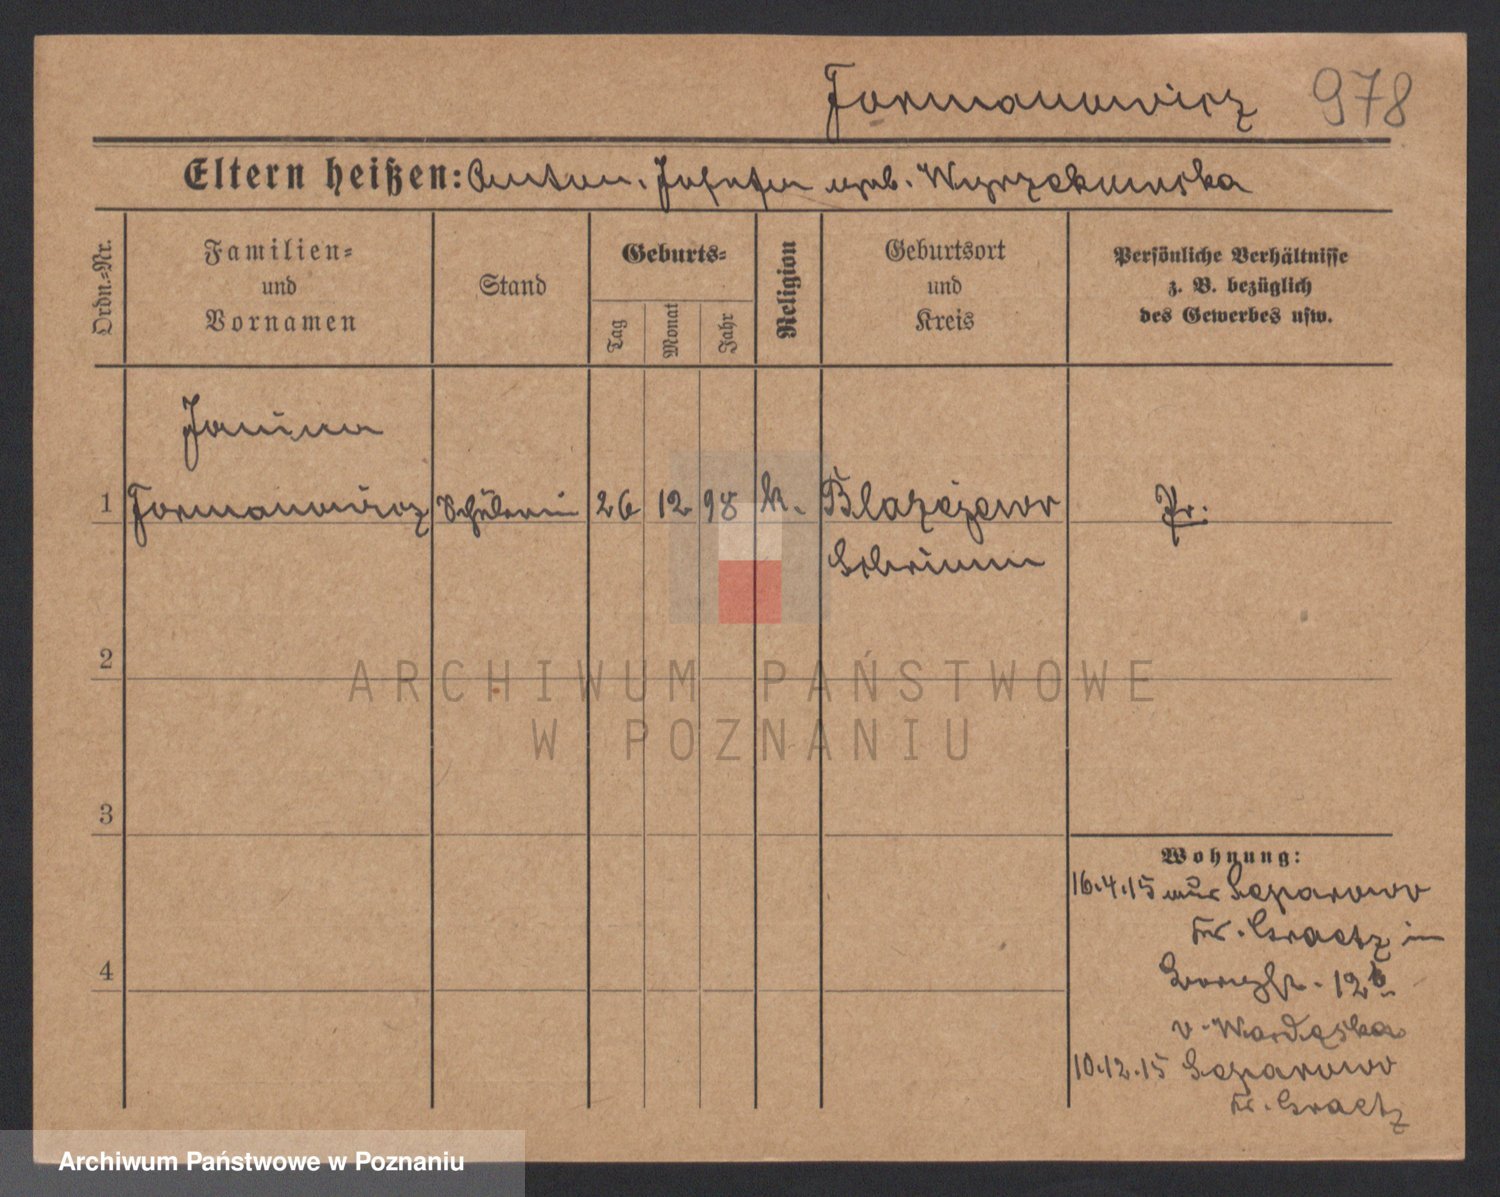 Formanowicz 978
Eltern heißen: Anton. Josefa geb. Wyrzekowska
Ordn.-Nr.
Familien-
und
Vornamen
Stand
Geburts-
Tag
Monat
Jahr
Religion
Geburtsort
und
Kreis
Persönliche Verhältnisse
z. B. bezüglich
des Gewerbes usw.
Janina
1 Formanowicz Schülerin 26 12 98 k. Blazejewo Pr.
Schrimm
2
3
4
Wohnung:
16.4.15 aus Separowo
Kr. Graetz in
12b
v.
10.12.15 Separowo
Kr. Graetz
ARCHIWUM PAŃSTWOWE
W POZNANIU
Archiwum Państwowe w Poznaniu